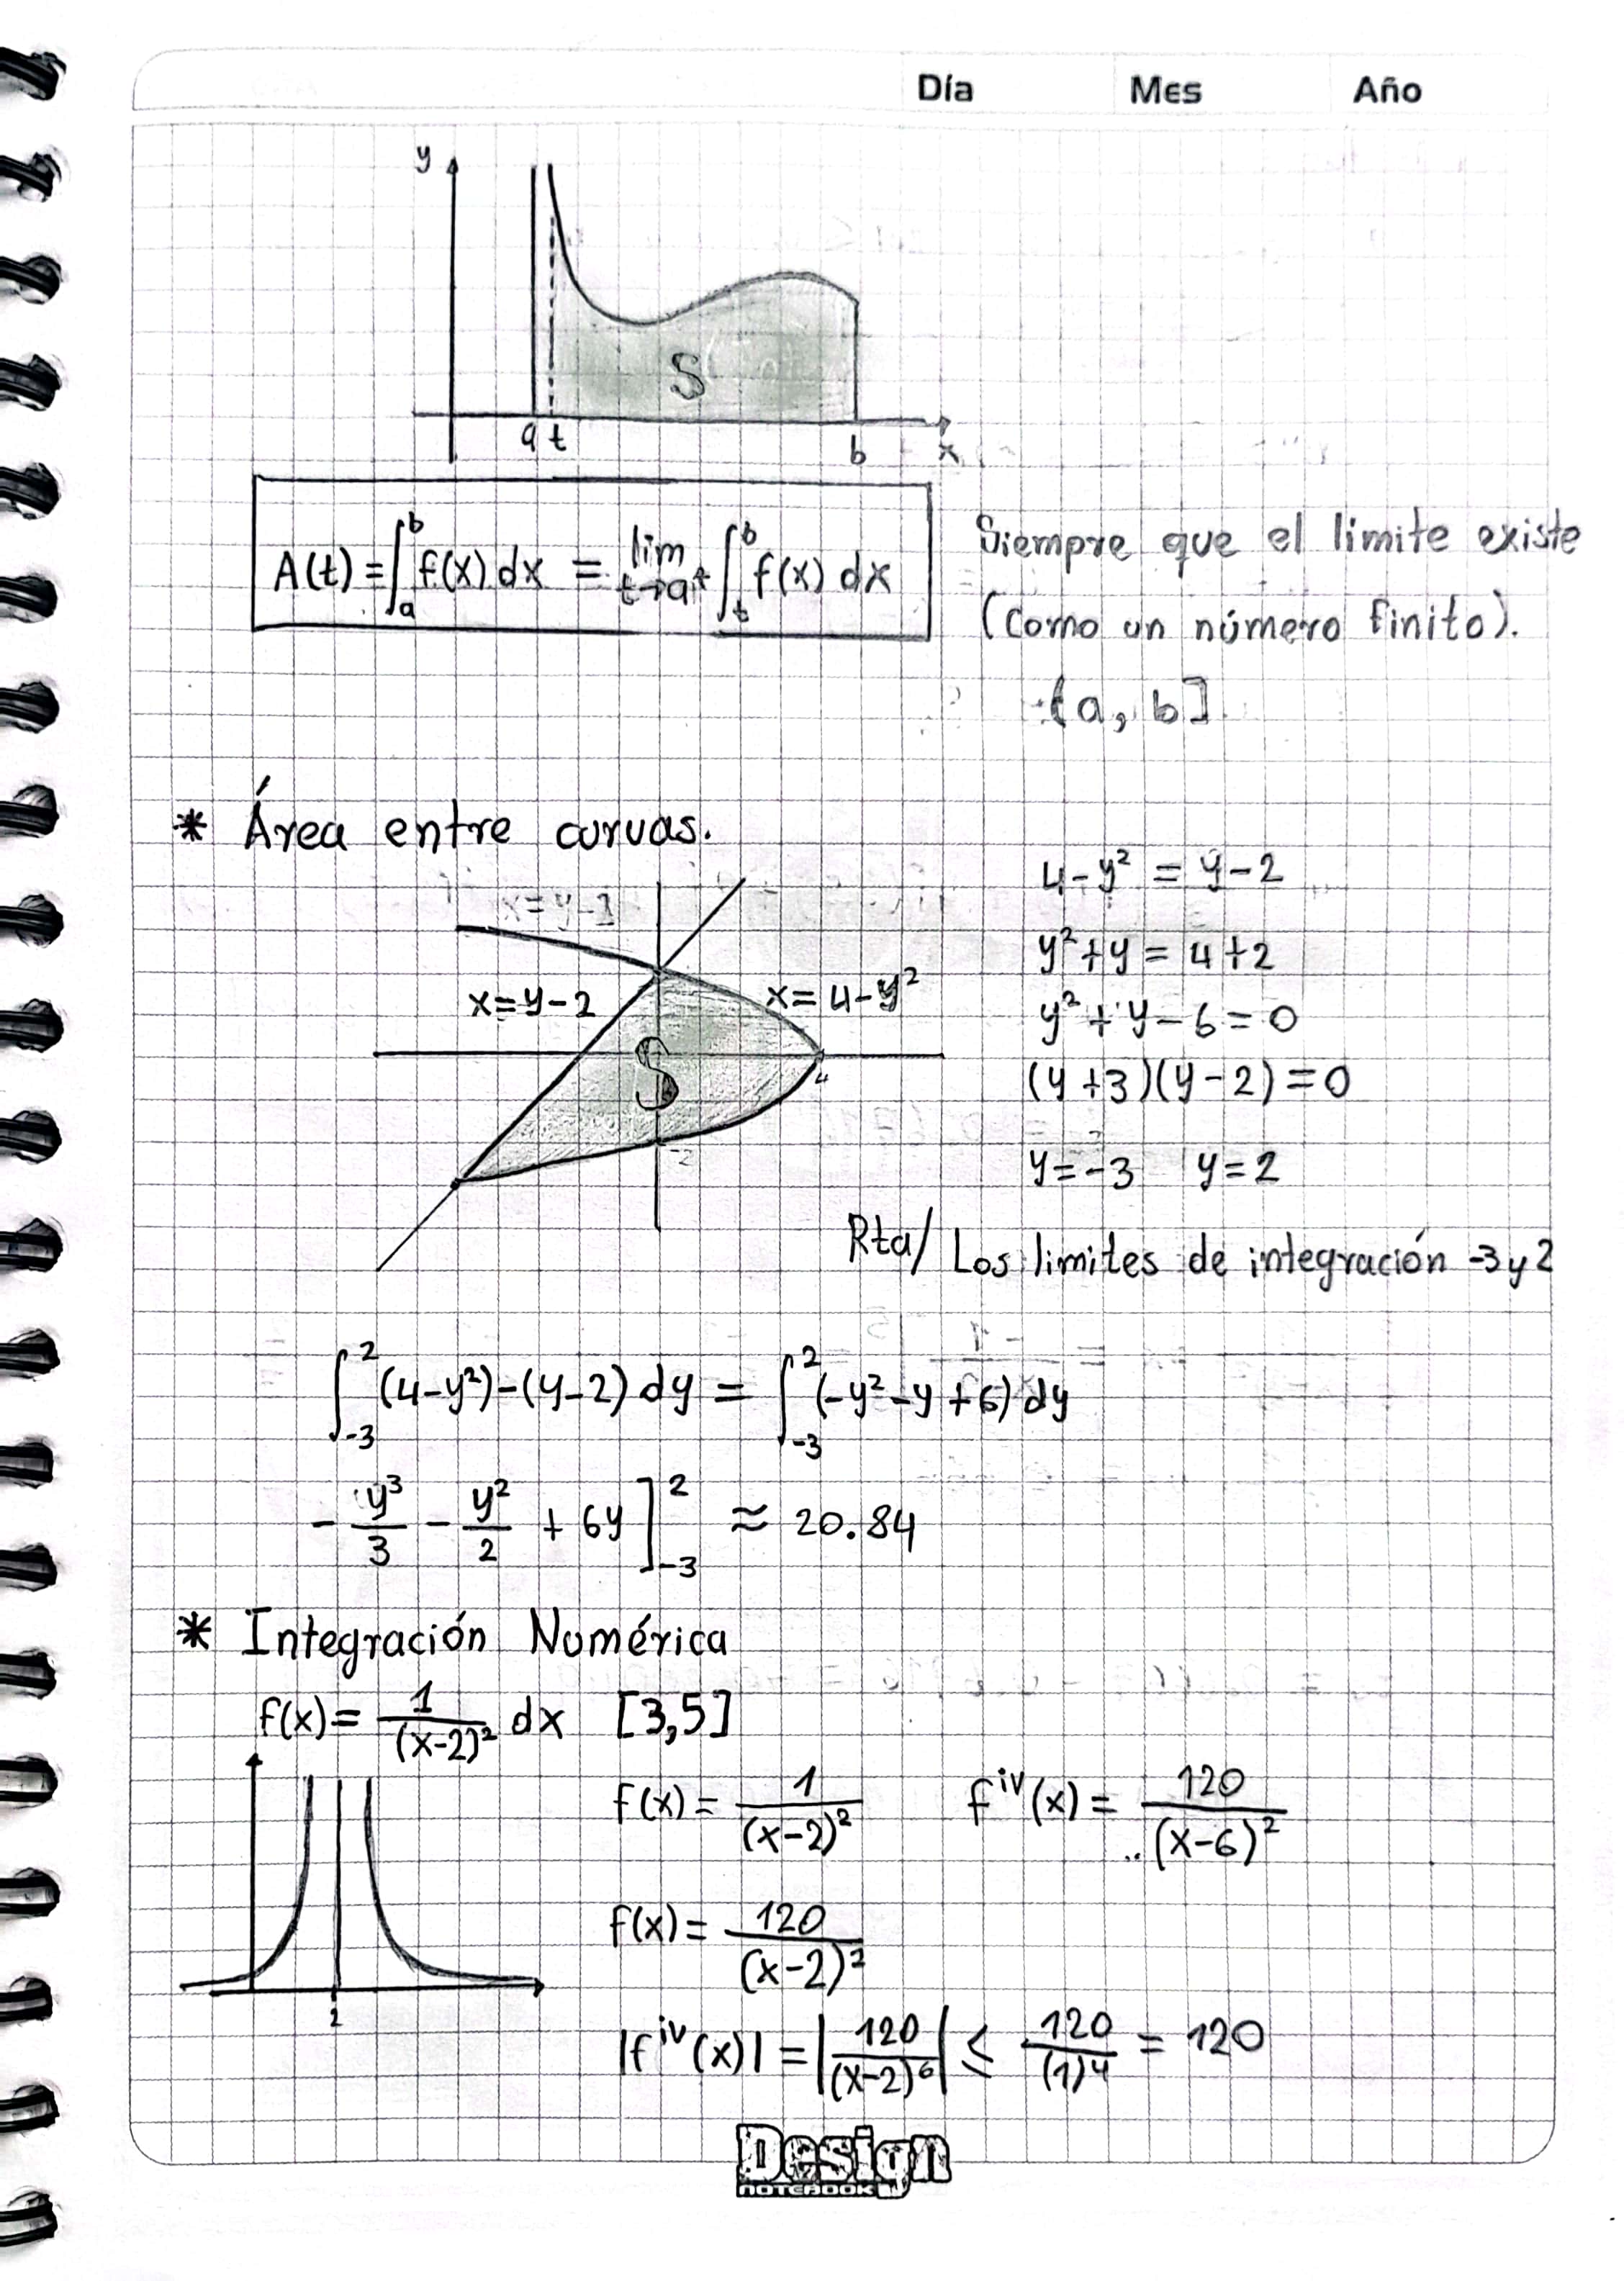 Día Mes Año
y
S
a t b x
A(t) = ∫_a^b f(x) dx = lim_{t→a⁺} ∫_t^b f(x) dx
Siempre que el limite existe
(como un número finito).
(a, b]
* Área entre curvas.
x=y-2
x=4-y²
S
4
-2
4-y² = y-2
y²+y = 4+2
y²+y-6=0
(y+3)(y-2)=0
y=-3 y=2
Rta/ Los limites de integración -3 y 2
∫_{-3}^{2} (4-y²)-(y-2) dy = ∫_{-3}^{2} (-y²-y+6) dy
- y³/3 - y²/2 + 6y ]_{-3}^{2} ≈ 20.84
* Integración Numérica
f(x)= 1/(x-2)² dx [3,5]
2
f(x)= 1/(x-2)² f^{iv}(x)= 120/(x-6)²
f(x)= 120/(x-2)²
|f^{iv}(x)| = |120/(x-2)⁶| ≤ 120/(1)4 = 120
Design
NOTEBOOK